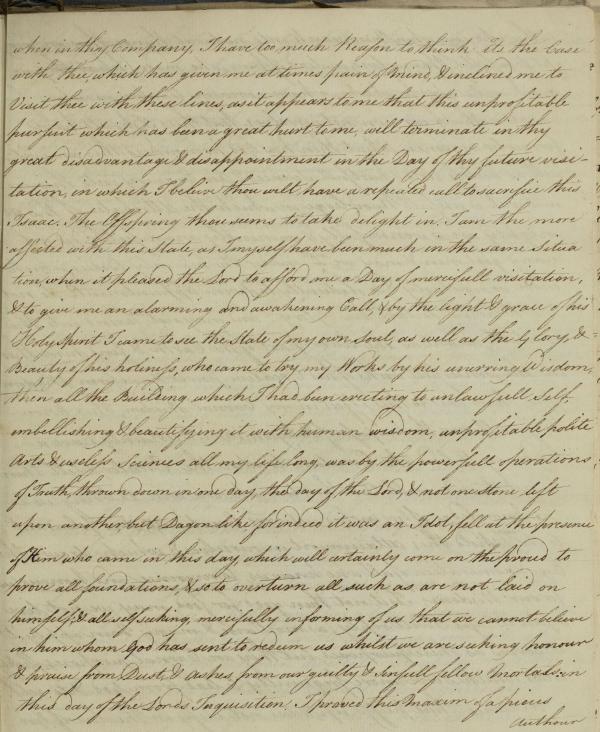 when in thy Company, I have too much Reason to think its the Case
with thee, which has given me at times pain of mind, & inclined me to
Visit thee with these lines, as it appears to me that this unprofitable
pursuit which has been a great hurt to me, will terminate in thy
great disadvantage & disappointment in the Day of thy future visi-
tation, in which I beleive thou wilt have a repeated call to sacrifice this
Isaac. The Offspring thou seems to take delight in. I am the more
affected with this State, as I myself have been much in the same Situa
tion, when it pleased the Lord to afford me a Day of mercifull visitation,
& to give me an alarming and awakening Call, & by the light & grace of his
Holy Spirit I came to see the State of my own soul, as well as the Glory, &
Beauty of his holiness, who came to try my Works by his unerring Wisdom,
then all the Building which I had been erecting to unlawfull Self,
embellishing & beautifying it with human wisdom, unprofitable polite
Arts & useless Sciences all my life long, was by the powerfull operations
of Truth, thrown down in one day, the day of the Lord, & not one Stone left
upon another, but Dagon like for indeed it was an Idol, fell at the presence
of Him who came in this day which will certainly come on the proud to
prove all foundations, & so to overturn all such as are not laid on
himself, & all self seeking, mercifully informing of us that we cannot believe
in him whom God has sent to redeem us whilst we are seeking honour
& praise from Dust, & Ashes, from our guilty & sinfull fellow Mortals: in
this day of the Lords Inquisition. I proved this Maxim of a pious
Authour